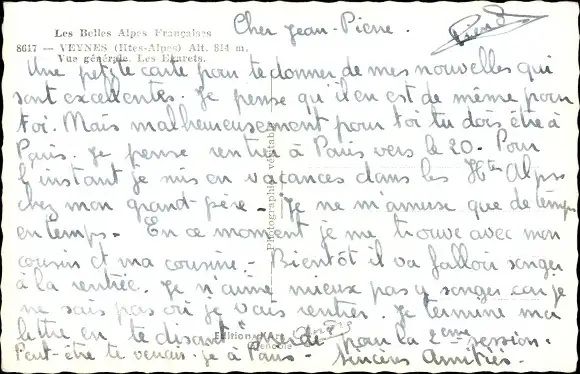 Les Belles Alpes Françaises
Cher Jean-Pierre.
8617 - VEYNES (Htes-Alpes) Alt. 814 m.
Vue générale. Les Egarets.
Une petite carte pour te donner de mes nouvelles qui
sont excellentes. Je pense qu'il en est de même pour
toi. Mais malheureusement pour toi tu dois être à
Paris. Je pense rentrer à Paris vers le 20. Pour
l'instant je suis en vacances dans les Htes Alpes
chez mon grand-père - Je ne m'amuse que de temps
en temps - En ce moment je me trouve avec mon
cousin et ma cousine - Bientôt il va falloir songer
à la rentrée. Je n'aime mieux pas y songer car je
ne sais pas où je vais rentrer. Je termine ma
lettre en te disant merde pour la 2ème session.
Peut-être te verrais-je à Paris - Sincères Amitiés -
Photographie véritable
Edition
Grenoble